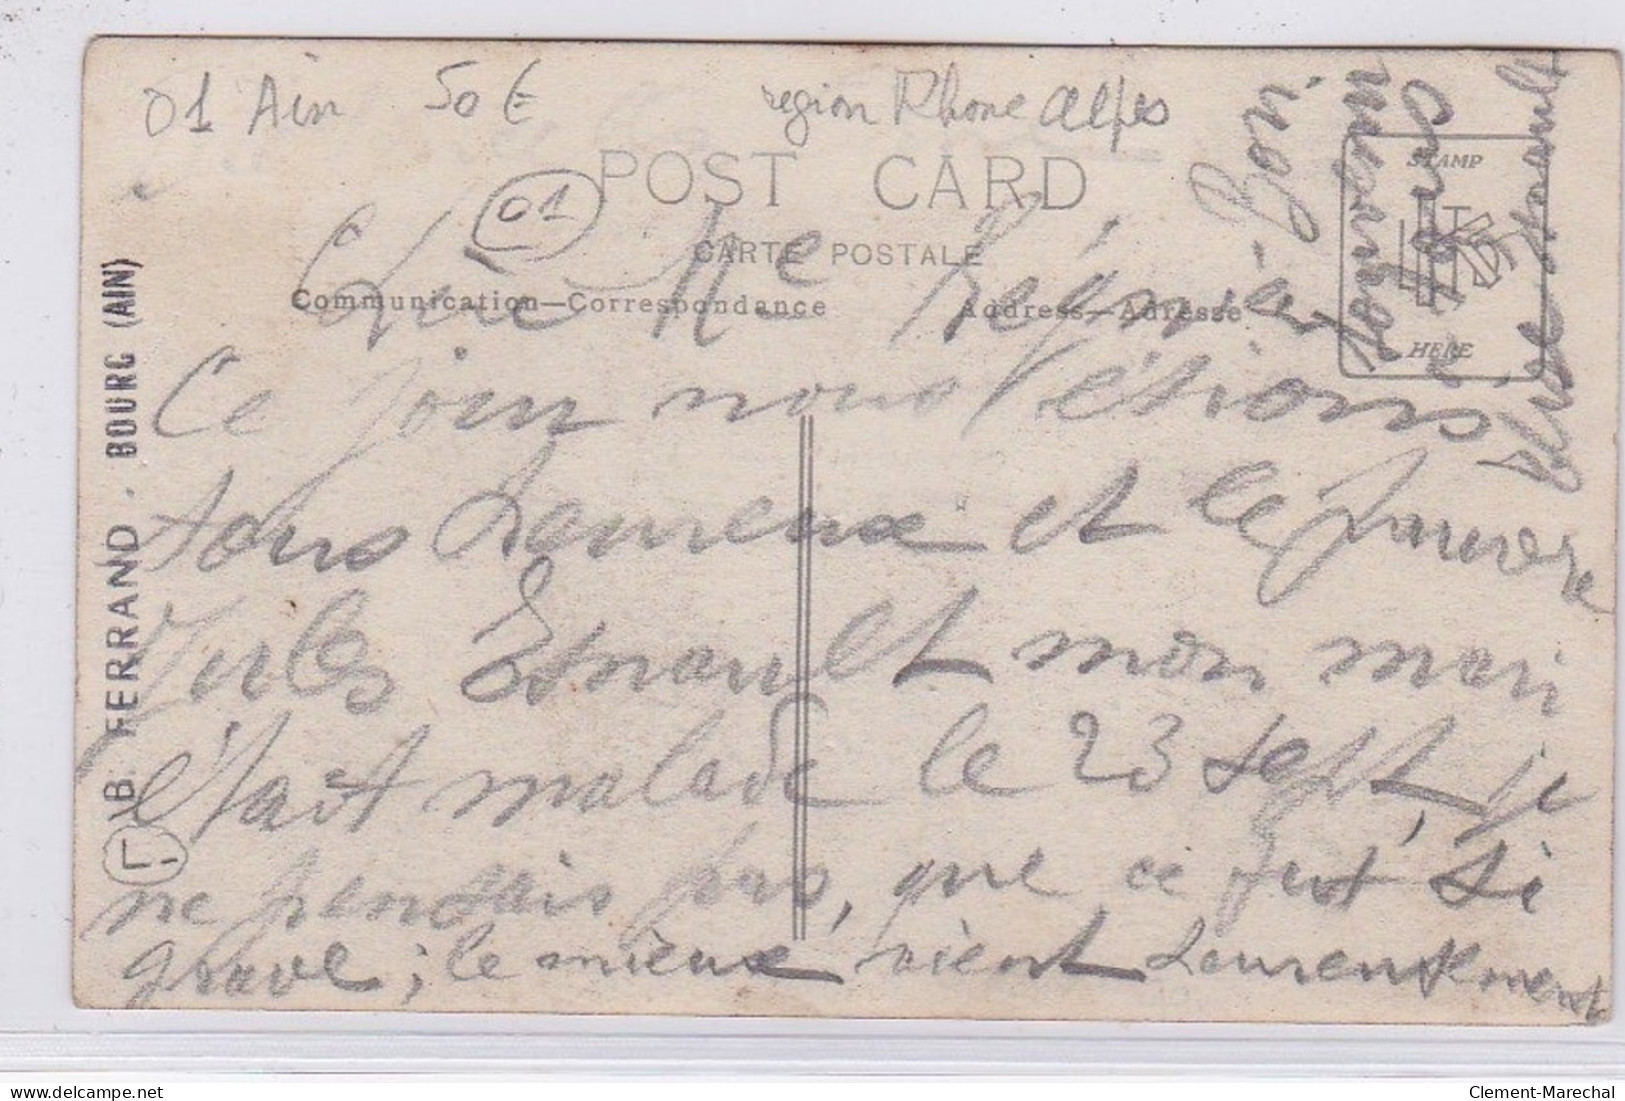 01 Ain 50 € region Rhone Alpes
POST CARD
01
CARTE POSTALE
Communication—Correspondance
Address—Adresse
STAMP
HERE
Chère Mme Régnier
Ce jour nous étions
tous heureux et le pauvre
Jules Esnault mon mari
était malade le 23 sept, je
ne pensais pas, que ce fut si
grave; le mieux vient heureusement
Bon
courage
B. FERRAND . BOURG (AIN)
Clement-Marechal